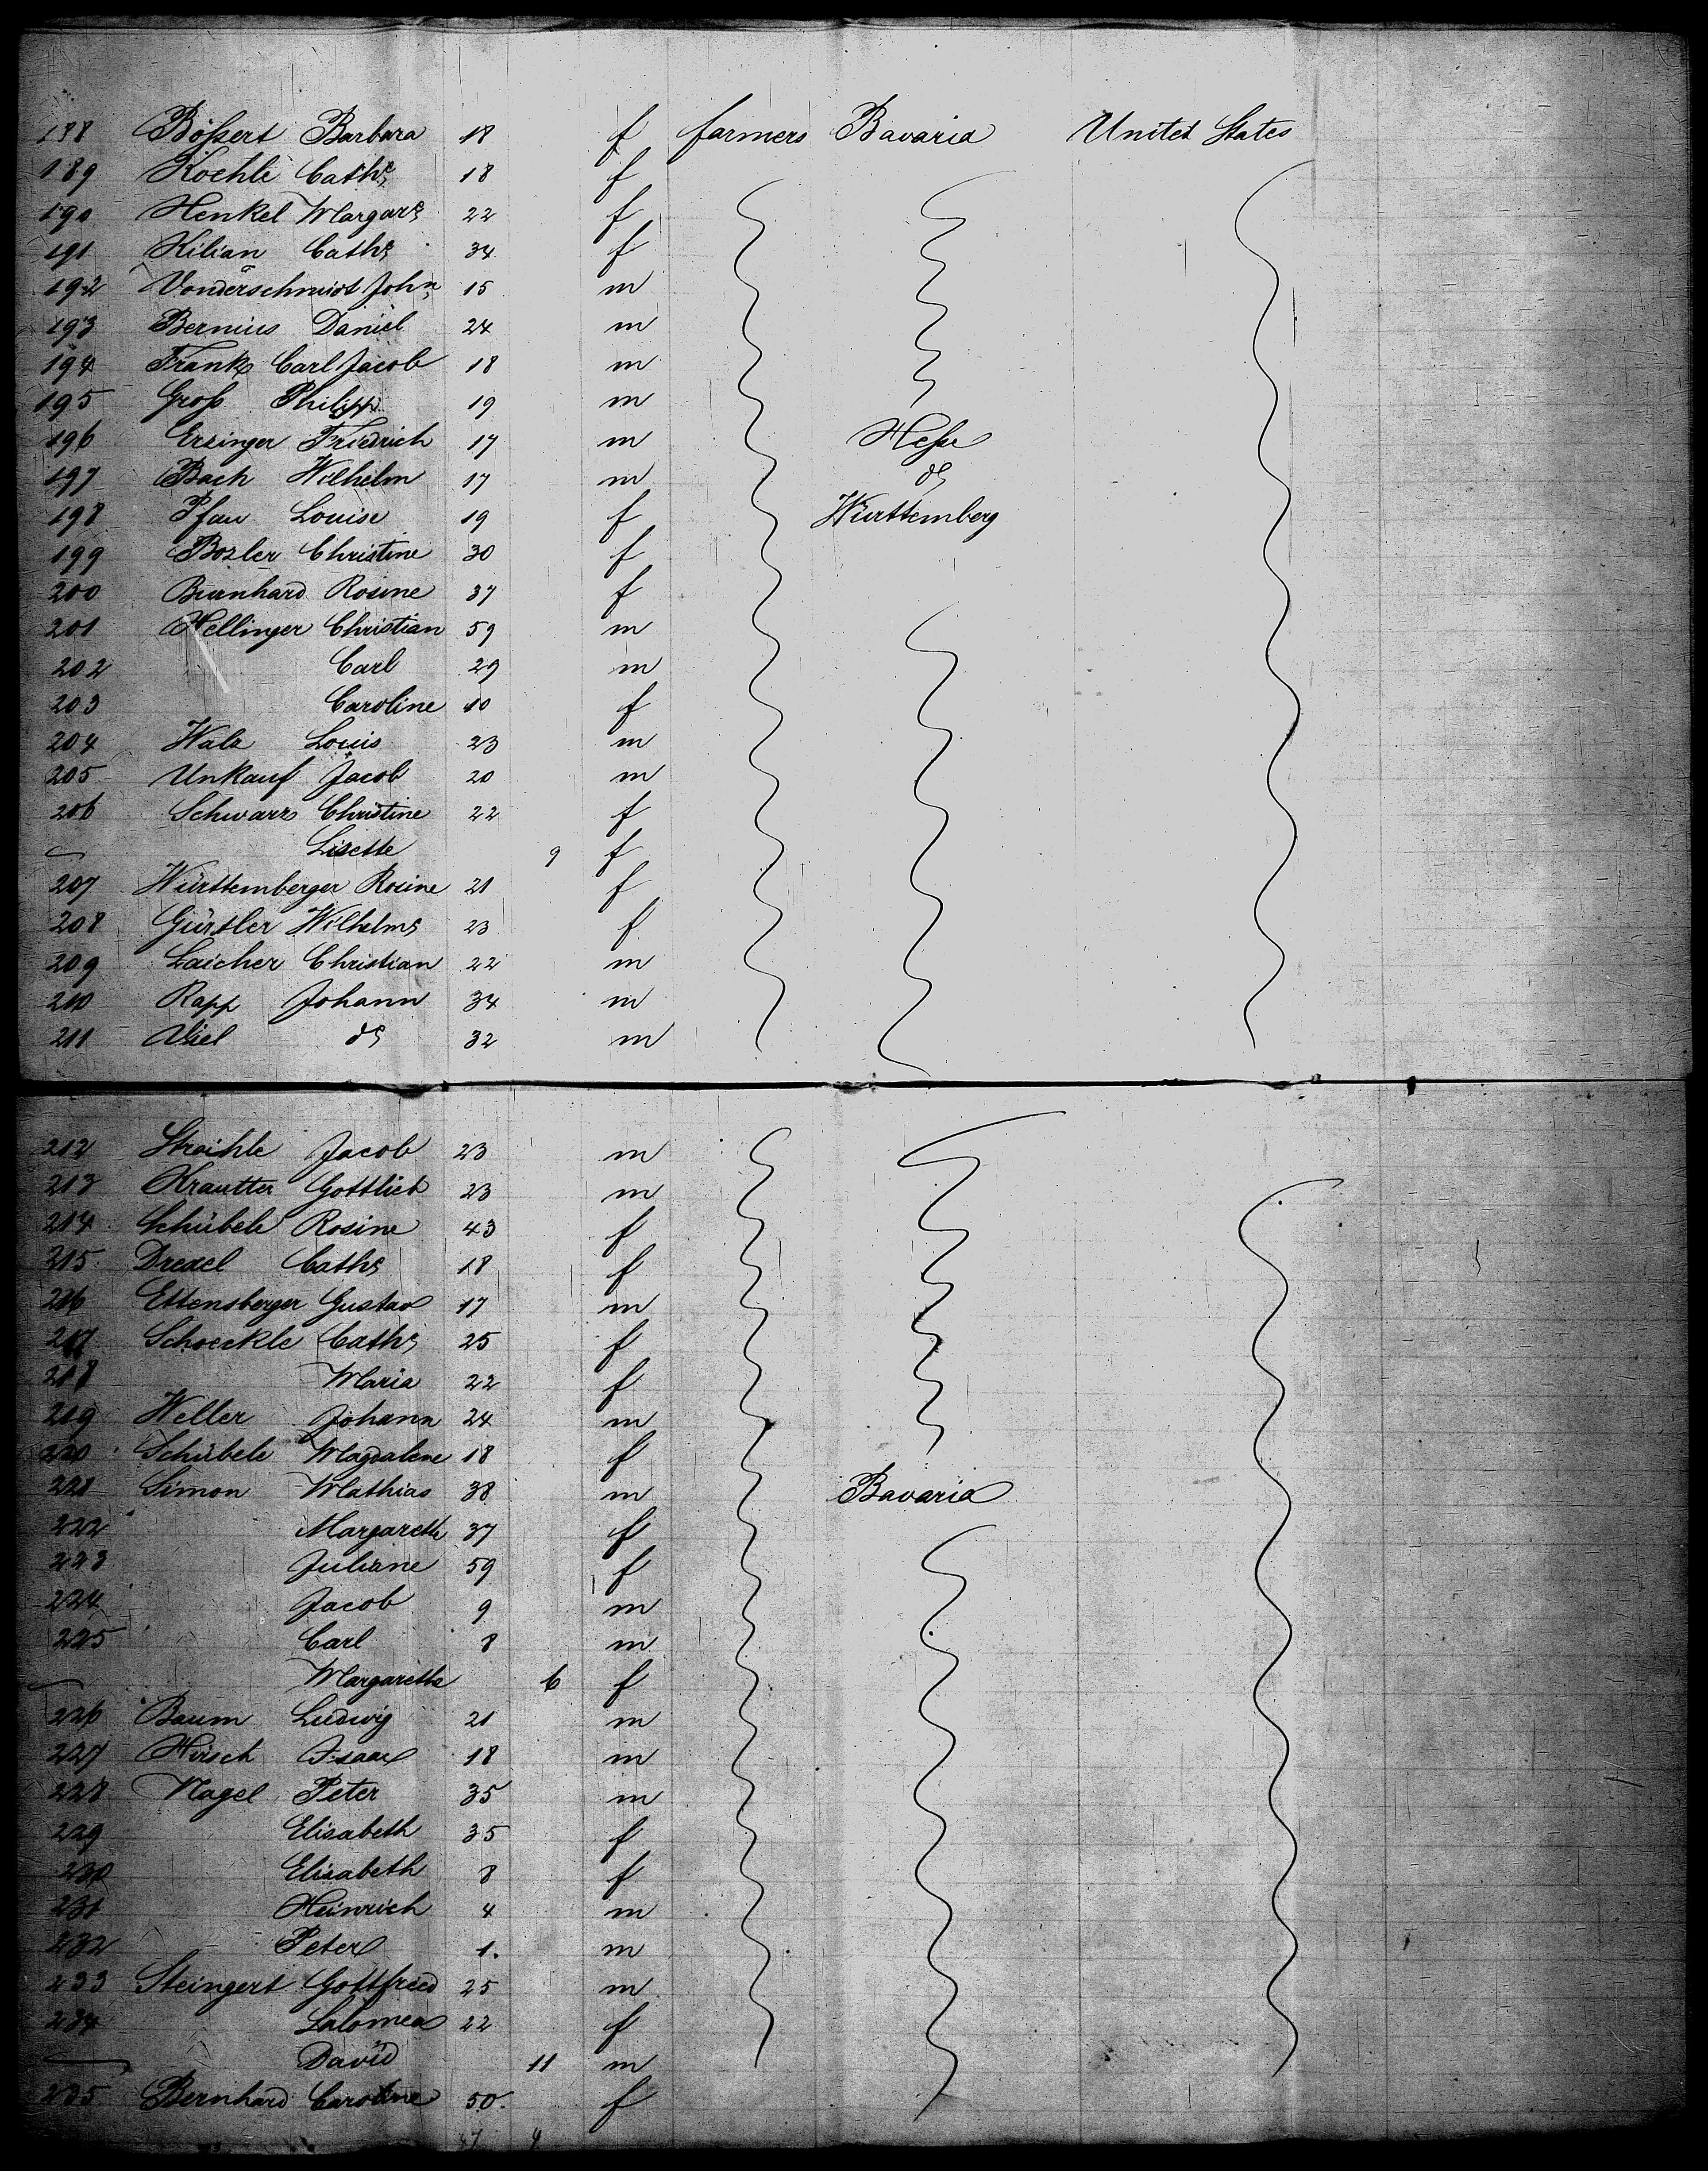 188 Bößert Barbara 18 f farmers Bavaria United States
189 Koehle Cathe 18 f
190 Henkel Margare 22 f
191 Kilian Cathe 34 f
192 Vonderschmidt John 15 m
193 Bernius Daniel 24 m
194 Frank Carl Jacob 18 m
195 Groß Philipp 19 m
196 Ersinger Friedrich 17 m Heße
197 Bach Wilhelm 17 m do
198 Pfau Louise 19 f Württemberg
199 Bozler Christine 30 f
200 Burnhard Rosine 37 f
201 Hellinger Christian 59 m
202 Carl 29 m
203 Caroline 10 f
204 Walz Louis 23 m
205 Unkauf Jacob 20 m
206 Schwarz Christine 22 f
Lisette 9 f
207 Württemberger Rosine 21 f
208 Gürtler Wilhelme 23 f
209 Laicher Christian 22 m
210 Rapp Johann 34 m
211 do 32 m
212 Straihle Jacob 23 m
213 Krautter Gottlieb 23 m
214 Schübele Rosine 43 f
215 Drexel Cathe 18 f
216 Ettensberger Gustav 17 m
217 Schoeckle Cathe 25 f
218 Maria 22 f
219 Weller Johann 24 m
220 Schübele Magdalene 18 f
221 Simon Mathias 38 m Bavaria
222 Margareth 37 f
223 Juliane 59 f
224 Jacob 9 m
225 Carl 8 m
Margaretha 6 f
226 Baum Ludwig 21 m
227 Hirsch Isaac 18 m
228 Nagel Peter 35 m
229 Elisabeth 35 f
230 Elisabeth 8 f
231 Heinrich 4 m
232 Peter 1. m
233 Steingert Gottfried 25 m
234 Salomea 22 f
David 11 m
235 Bernhard Caroline 50. f
47 4